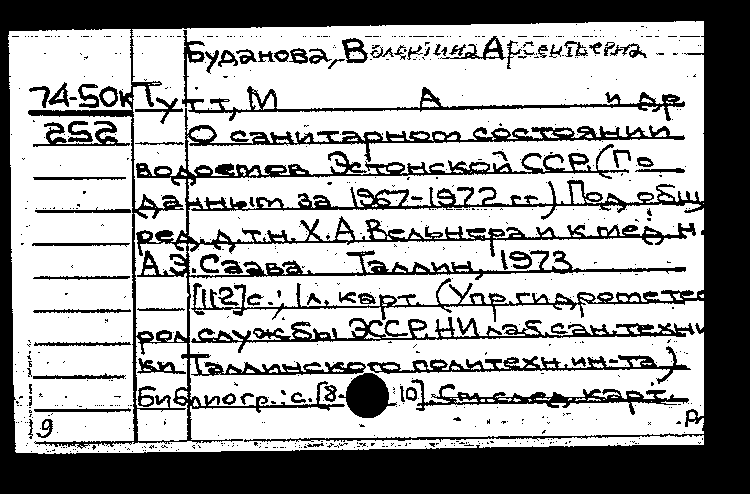 Буданова, Валентина Арсентьевна
74-50к Тутт, М А и др
252 О санитарном состоянии
водоемов Эстонской ССР. (По
данным за 1967-1972 гг.). Под общ
ред. д.т.н. Х.А.Вельнера и к.мед.н.
А.Э.Саава. Таллин, 1973.
[112]с.; 1л. карт. (Упр.гидрометео
рол.службы ЭССР. НИ лаб.сан.техни
ки Таллинского политехн.ин-та)
Библиогр.: с.[8- 10]. См след карт.
9